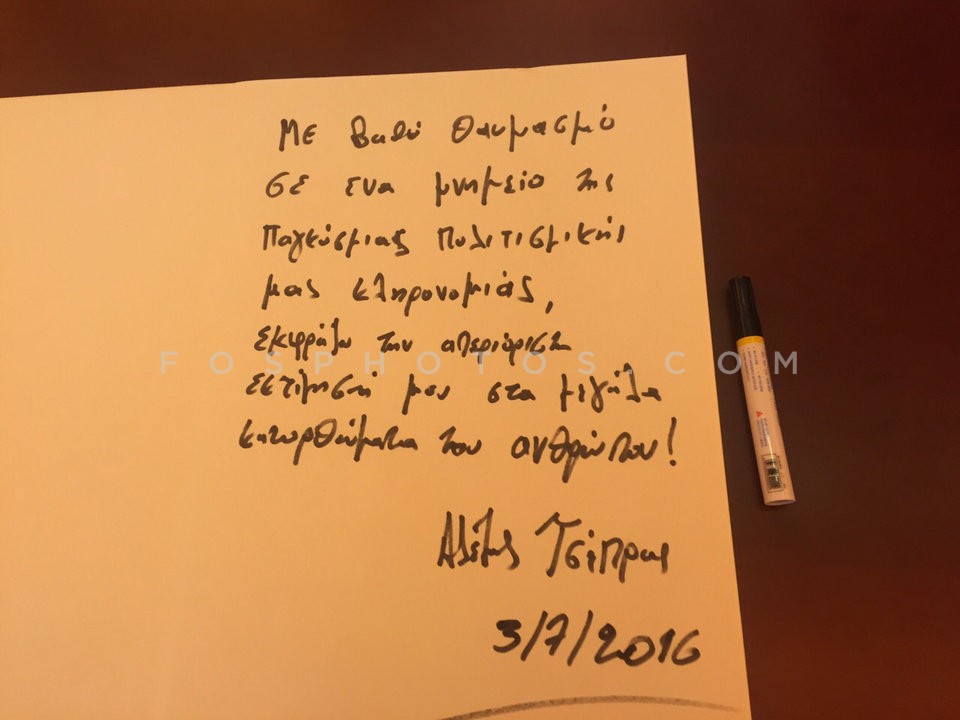 Με βαθύ θαυμασμό
σε ενα μνημείο της
παγκόσμιας πολιτισμικής
μας κληρονομιάς,
εκφράζω την απεριόριστη
εκτίμησή μου στα μεγάλα
κατορθώματα του ανθρώπου!
FOSPHOTOS.COM
Αλέξης Τσίπρας
3/7/2016